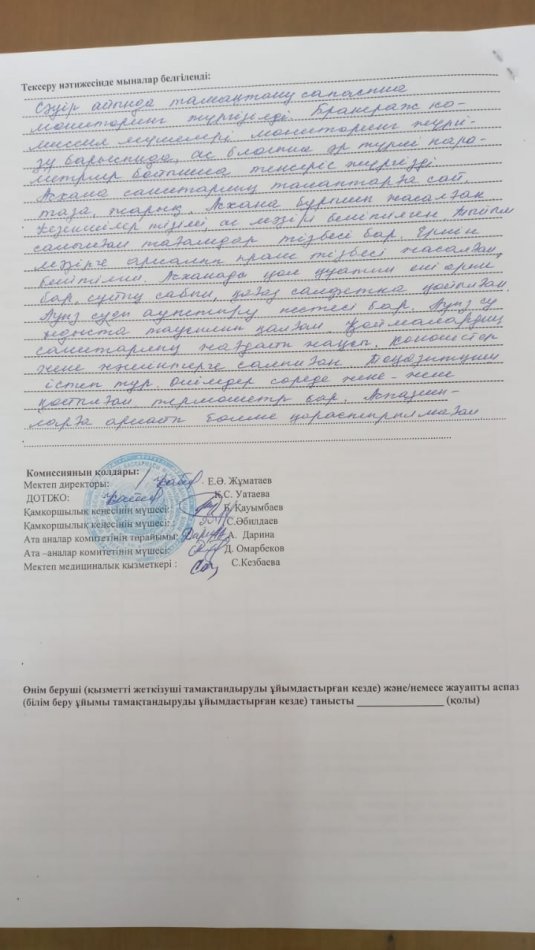 Тексеру нәтижесінде мыналар белгіленді:
Сәуір айында тамақтану сапасына
мониторинг жүргізелді. Бракераж ко-
миссия мүшелері мониторинг жүргі-
зу барысында, ас блогына әр түрлі пара-
литрлер бойынша тексеріс жүргізді.
Асхана санитарлық талаптарға сай,
таза, жарық. Асхана бұрышы жасалған
Кезекшілер тізімі ас мәзірі бекітілген
тағамдар тізбесі бар.
мәзірге арналған прайс тізбесі жасалған,
бекітілген. Асханада қол жуатын екі орын
бар, сұйық сабын, қағаз салфетка қойылған.
Ауыз суды ауыстыру кестесі бар. Ауыз су
ыдыста таусылып қалған. Қоймалардың
санитарлық жағдайы жақсы,
және жәшіктерге салынған. Тоңазытқыш
істеп тұр. Өнімдер сөреде жеке-жеке
қойылған термометр бар. Аспазшы-
ларға арнайы бөлме қарастырылмаған
Комиссияның қолдары:
Мектеп директоры: Е.Ә. Жұматаев
ДОТЖО: К.С. Уатаева
Қамкоршылық кеңесінің мүшесі: Б. Қауымбаев
Қамкоршылық кеңесінің мүшесі: С.Әбилдаев
Ата аналар комитетінің төрайымы: А. Дарина
Ата –аналар комитетінің мүшесі: Д. Омарбеков
Мектеп медициналық қызметкері : С.Кезбаева
Өнім беруші (қызметті жеткізуші тамақтандыруды ұйымдастырған кезде) және/немесе жауапты аспаз
(білім беру ұйымы тамақтандыруды ұйымдастырған кезде) танысты ________________ (қолы)